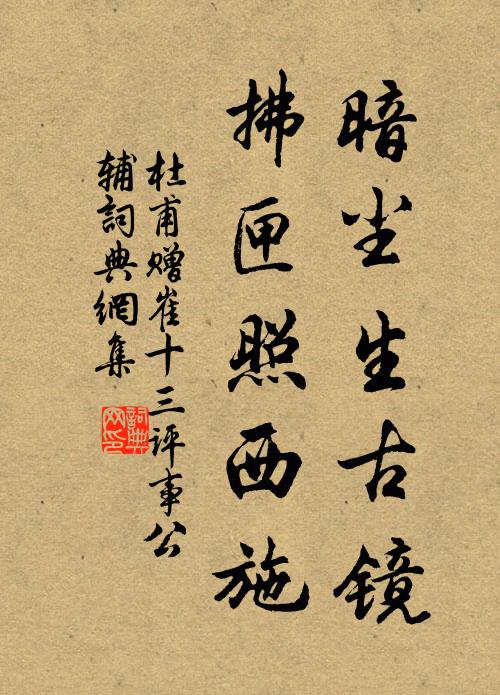 暗尘生古镜
拂匣照西施
杜甫赠崔十三评事公
辅詞典網集
詞典
网印